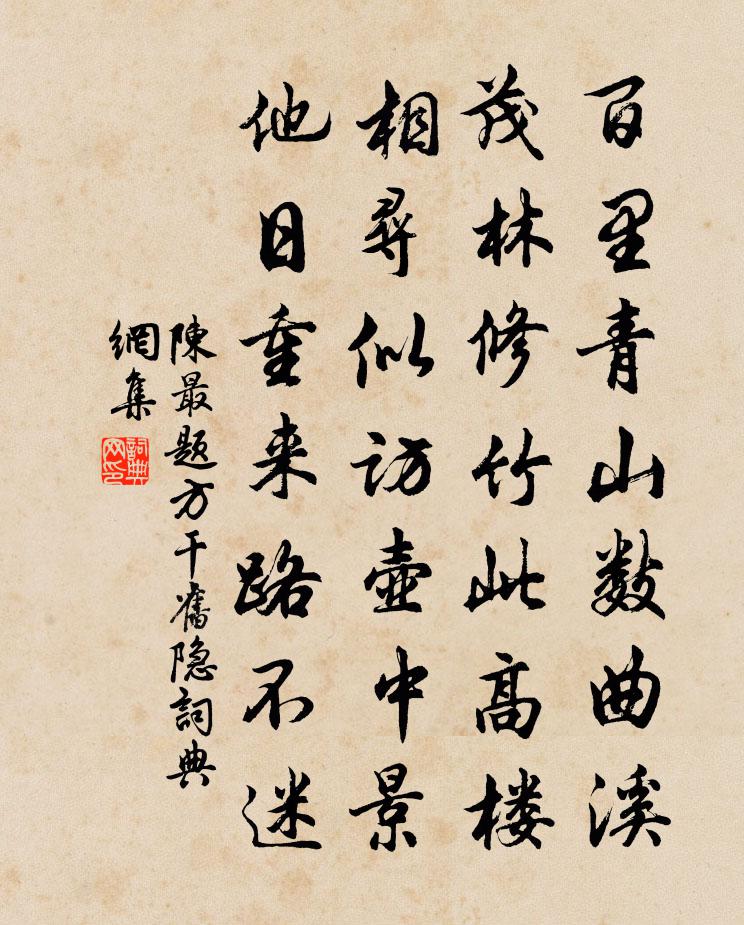 百里青山数曲溪
茂林修竹此高楼
相尋似访壺中景
他日重来路不迷
陳最题方干舊隐詞典
網集
詞典網印